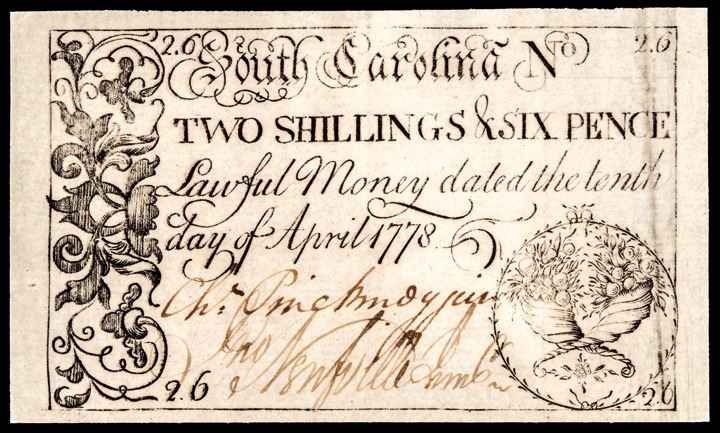 2.6 South Carolina No 2.6
TWO SHILLINGS & SIX PENCE
Lawful Money dated the tenth
day of April 1778
Chs. Pinckney jun
Jno Neufville Junr
2.6 2.6